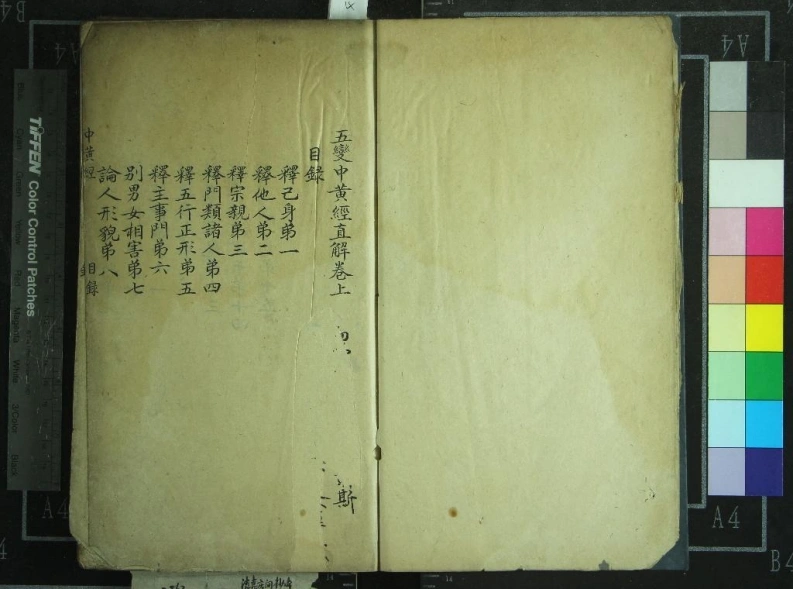 五變中黃經直解卷上
目錄
釋己身第一
釋他人第二
釋宗親第三
釋門類諸人第四
釋五行正形第五
釋主事門第六
別男女相害第七
論人形貌第八
中黃經 目錄
斯
TIFFEN Color Control Patches
Magenta
White
3/Color
Black
A4
A4
A4
A4
B4